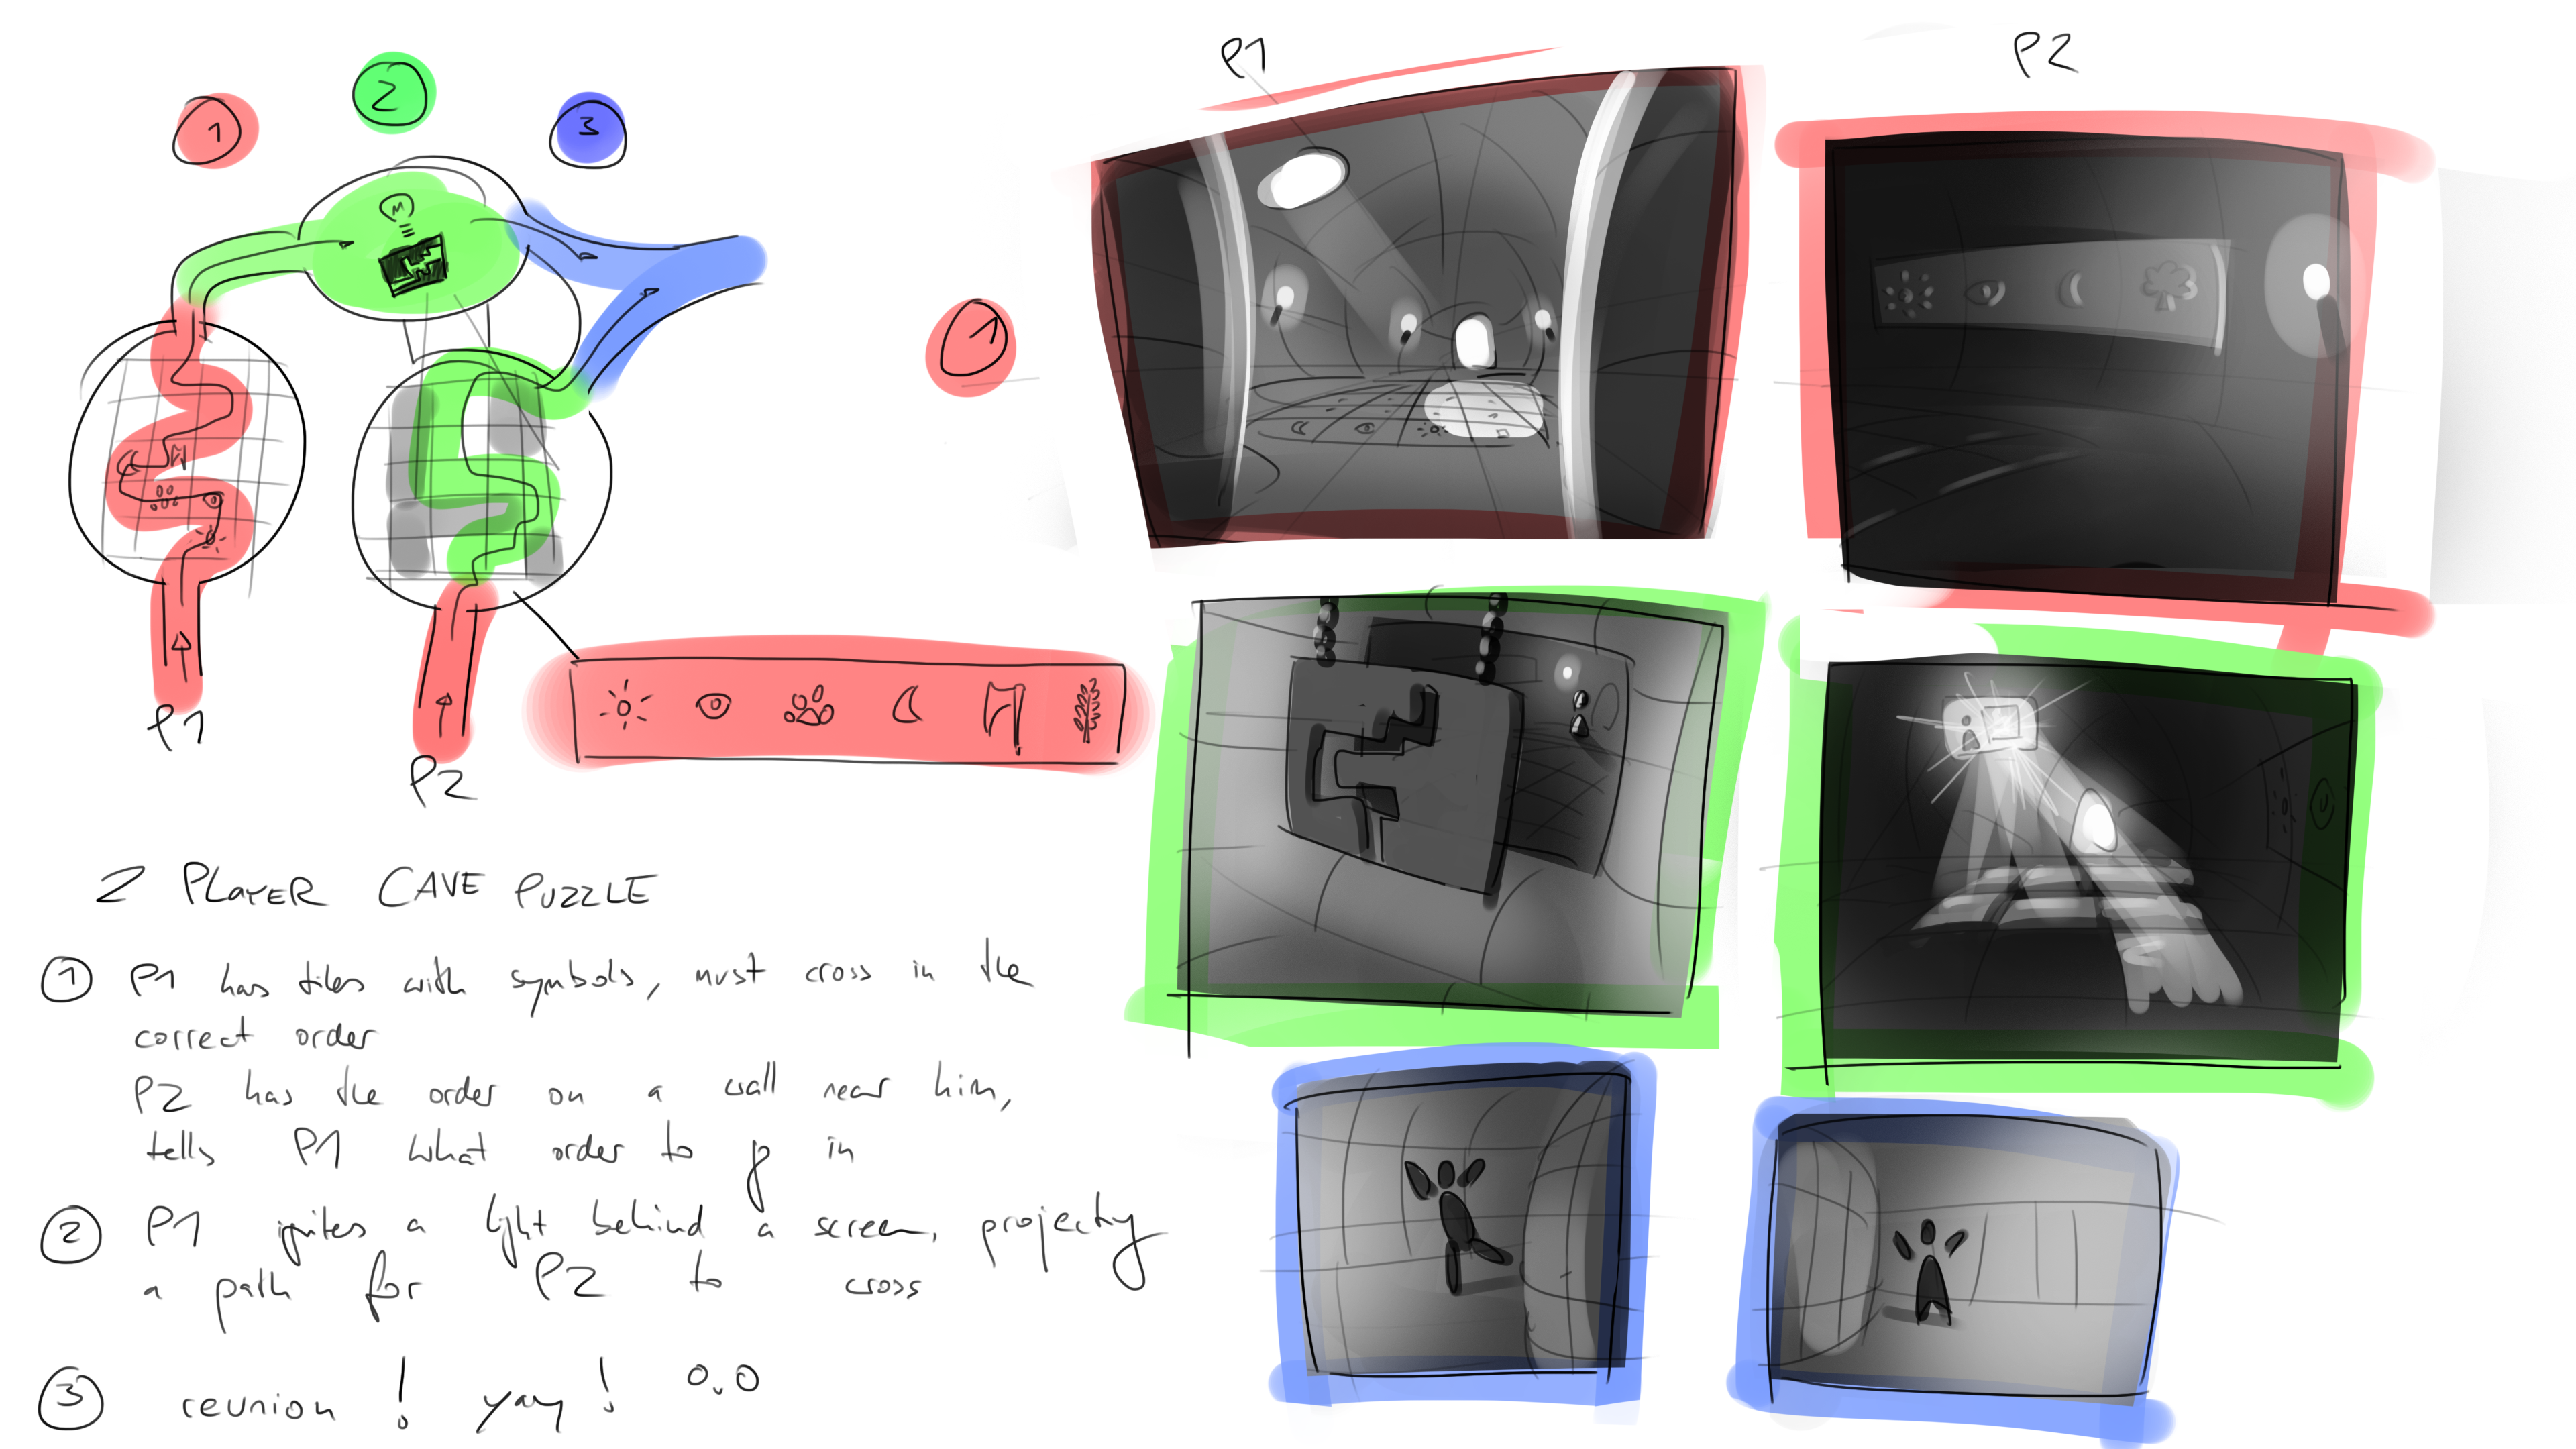 1
2
3
P1
P2
1
P1
P2
2 PLAYER CAVE PUZZLE
1 P1 has tiles with symbols, must cross in the
correct order
P2 has the order on a wall near him,
tells P1 what order to go in
2 P1 ignites a light behind a screen, projecting
a path for P2 to cross
3 reunion! yay! o.o